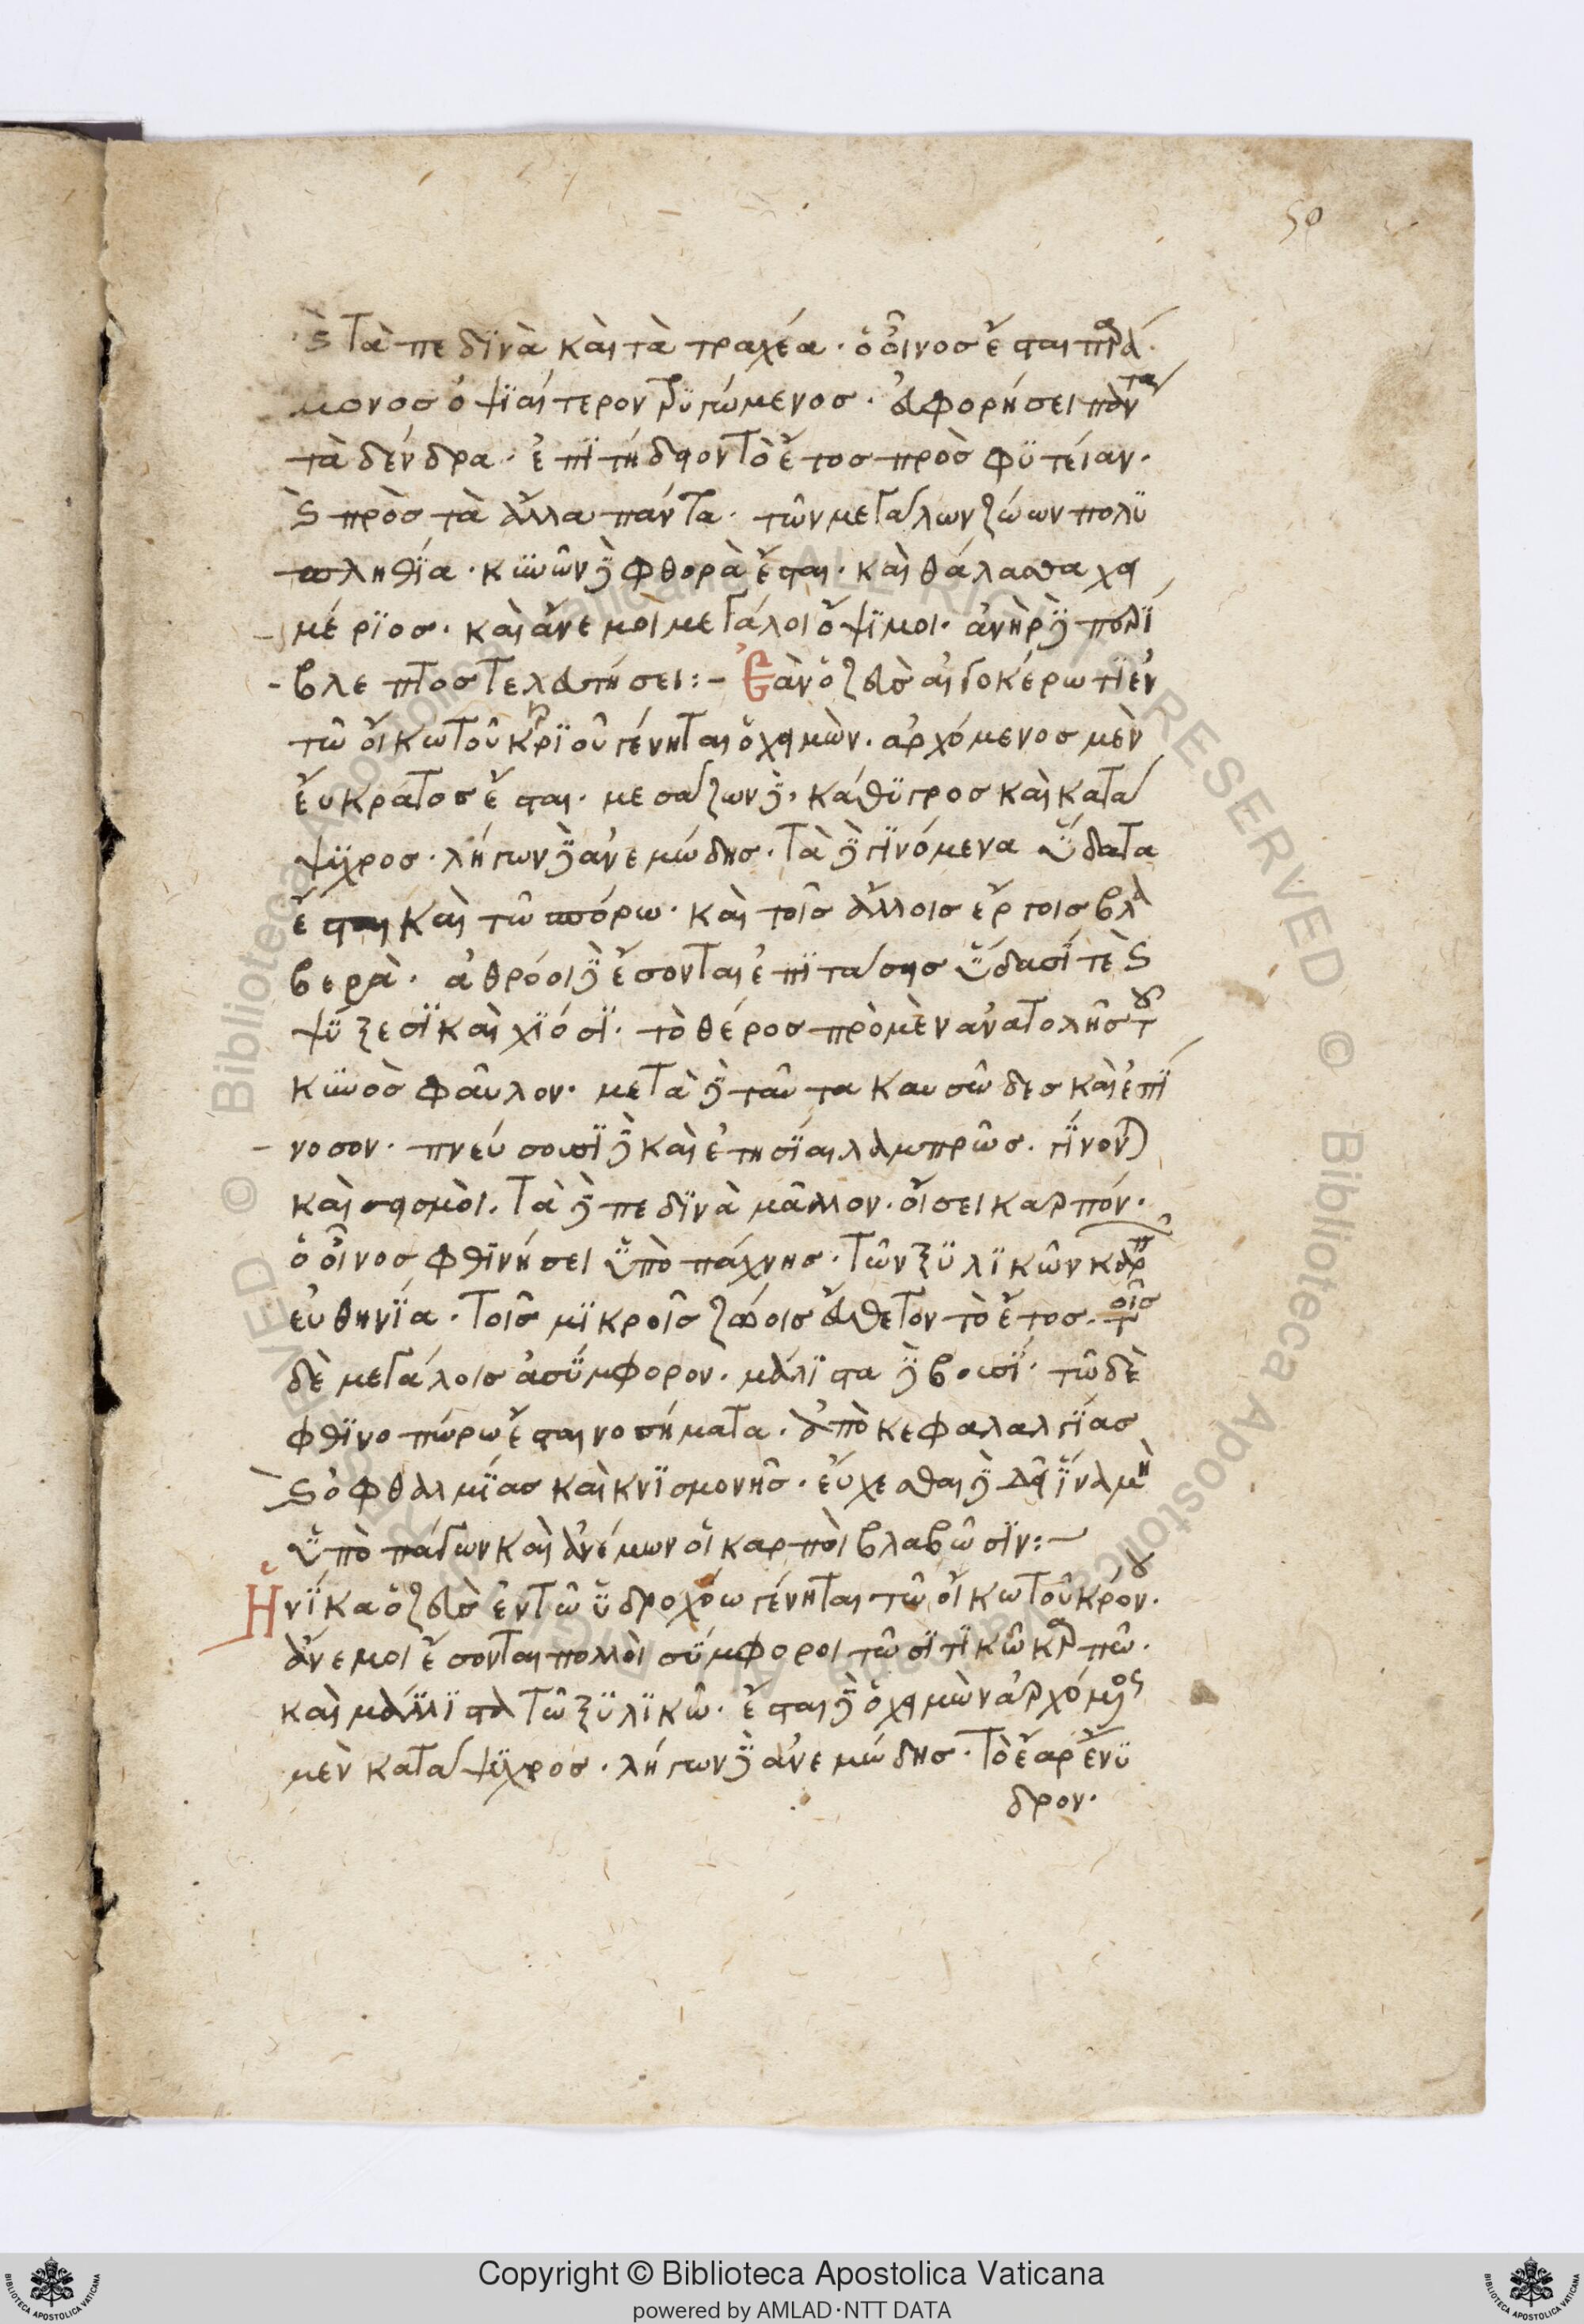 50
ϛ τὰ πεδϊνὰ καὶ τὰ τραχέα. ὁ οἶνος ἔσται παρά
μονος ὀψϊαίτερον τρϋγώμενος. ἀφορήσει πάντα
τὰ δένδρα. ἐπϊτήδειον τὸ ἔτος πρὸς φϋτείαν.
ϛ πρὸς τὰ ἄλλα πάντα. τῶν μεγάλων ζώων πολϋ
πληθϊα. κϋνῶν δὲ φθορὰ ἔσται. καὶ θάλασσα χει
μέρϊος. καὶ ἄνεμοι μεγάλοι ὄψϊμοι. ἀνὴρ δὲ περϊ
βλεπτος τελευτήσει:– Ἐὰν ὁ ζεὺς αἰγοκέρωτϊ ἐν
τῶ οἴκω τοῦ κρϊοῦ γένηται ὁ χειμὼν. ἀρχόμενος μὲν
εὔκρατος ἔσται. μεσάζων δὲ, κάθϋγρος καὶ κατά
ψϋχρος. λήγων δὲ ἀνεμώδης. τὰ δὲ γϊνόμενα ὕδατα
ἔσται καὶ τῶ σπόρω. καὶ τοῖς ἄλλοις ἔργοις βλα
βερὰ. ἀθρόοι δὲ ἔσονται ἐπϊτάσεις ὕδασϊ τὲ ϛ
ψϋξεσϊ καὶ χϊόσϊ. τὸ θέρος πρὸ μὲν ἀνατολῆς τοῦ
κϋνὸς φαῦλον. μετὰ δὲ ταῦτα καυσῶδες καὶ ἐπϊ
νοσον. πνεύσουσϊ δὲ καὶ ἐτησϊαι λαμπρῶς. γϊνονται
καὶ σεισμὸι. τὰ δὲ πεδϊνὰ μᾶλλον. οἴσει καρπόν.
ὁ οἶνος φθϊνήσει ὑπὸ πάχνης. τῶν ξϋλϊκῶν καρπῶν
εὐθηνϊα. τοῖς μϊκροῖς ζώοις ἄθετον τὸ ἔτος. τοῖς
δὲ μεγάλοις ἀσϋμφορον. μάλϊστα δὲ βουσϊ. τῶ δὲ
φθϊνοπώρω ἔσται νοσήματα. ἀπὸ κεφαλαλγϊας
ϛ ὀφθαλμϊας καὶ κνϊσμονῆς. εὔχεσθαι δὲ δεῖ ἵνα μὴ
ὑπὸ πάγων καὶ ἀνέμων οἱ καρπὸι βλαβῶσϊν:–
Ἡνϊκα ὁ ζεὺς ἐν τῶ ὑδροχόω γένηται τῶ οἴκω τοῦ κρόνου.
ἄνεμοι ἔσονται πολλὸι σϋμφοροι τῶ σϊτϊκῶ καρπῶ.
καὶ μάλϊστα τῶ ξϋλϊκῶ. ἔσται δὲ ὁ χειμὼν ἀρχόμενος
μὲν κατάψϋχρος. λήγων δὲ ἀνεμώδης. τὸ ἔαρ ἔνϋ
δρον.
Copyright © Biblioteca Apostolica Vaticana
powered by AMLAD·NTT DATA